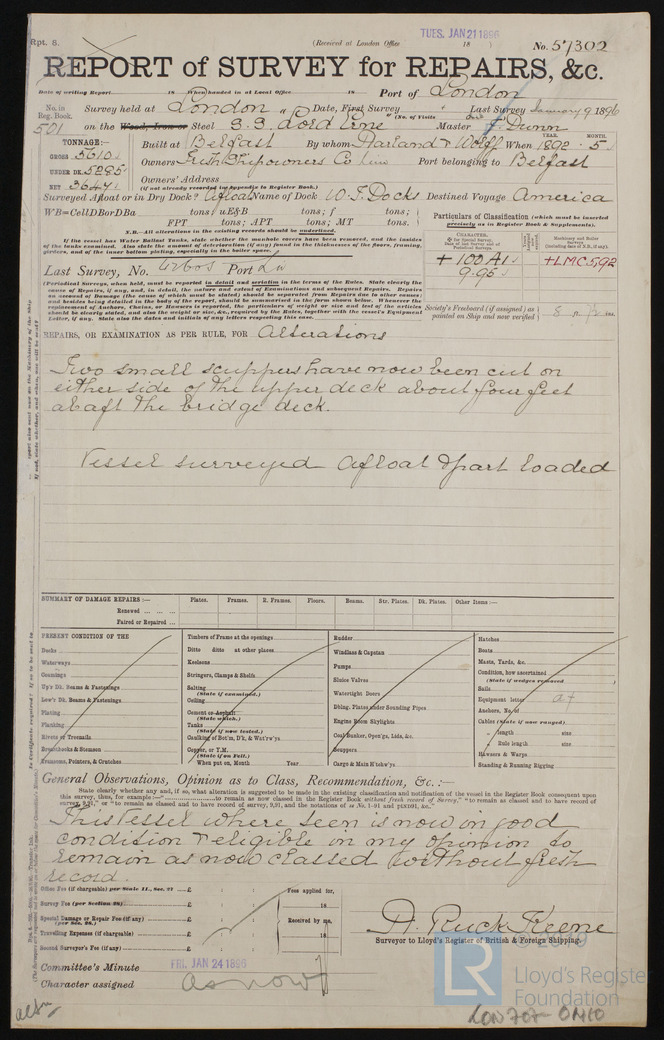 Rpt. 8.
(Received at London Office TUES. JAN 21 1896 18 )
No. 57302
REPORT of SURVEY for REPAIRS, &c.
Date of writing Report 18 When handed in at Local Office 18 Port of London
No. in Reg. Book. 501
Survey held at London Date, First Survey " Last Survey January 9 1896
(No. of Visits one)
on the Wood, Iron or Steel S.S. Lord Erne Master J. Dunn
TONNAGE:—
GROSS 5610
UNDER DK. 5285
NET 3647
Built at Belfast By whom Harland & Wolff When 1892 . 5
YEAR. MONTH.
Owners Irish Shipowners Co Lim Port belonging to Belfast
Owners' Address
(if not already recorded in Appendix to Register Book.)
Surveyed Afloat or in Dry Dock? Afloat Name of Dock W. I. Docks Destined Voyage America
WB=CellDBorDBa tons; uE&B tons; f tons;
FPT tons; APT tons; MT tons.
N.B.—All alterations in the existing records should be underlined.
If the vessel has Water Ballast Tanks, state whether the manhole covers have been removed, and the insides of the tanks examined. Also state the amount of deterioration (if any) found in the thicknesses of the floors, framing, girders, and of the inner bottom plating, especially in the boiler space.
Particulars of Classification (which must be inserted precisely as in Register Book & Supplements).
CHARACTER.
Machinery and Boiler Surveys (including date of N.B., if any).
+ 100A1
9.95
+LMC 5,92
Last Survey, No. Port Ln
(Periodical Surveys, when held, must be reported in detail and seriatim in the terms of the Rules. State clearly the cause of Repairs, if any, and, in detail, the nature and extent of Examinations and subsequent Repairs.
Society's Freeboard (if assigned) as painted on Ship and now verified
REPAIRS, OR EXAMINATION AS PER RULE, FOR Alterations
Two small scuppers have now been cut on
either side of the upper deck about four feet
abaft the bridge deck.
Vessel surveyed afloat & part loaded
SUMMARY OF DAMAGE REPAIRS:— Plates. Frames. R. Frames. Floors. Beams. Str. Plates. Dk. Plates. Other Items:—
Renewed
Faired or Repaired
PRESENT CONDITION OF THE
Decks
Waterways
Coamings
Up'r Dk. Beams & Fastenings
Low'r Dk. Beams & Fastenings
Plating
Planking
Rivets or Treenails
Breasthooks & Stemson
Transoms, Pointers, & Crutches
Timbers of Frame at the openings
Ditto ditto at other places
Keelsons
Stringers, Clamps & Shelfs
Salting
(State if examined.)
Ceiling
Cement or Asphalt
(State which.)
Tanks
(State if now tested.)
Caulking of Bot'm, D'k, & Wat'rw'ys
Copper, or Y.M.
(State if on Felt.)
When put on, Month Year
Rudder
Windlass & Capstan
Pumps
Sluice Valves
Watertight Doors
Dblng. Plates under Sounding Pipes
Engine Room Skylights
Coal Bunker, Open'gs, Lids, &c.
Scuppers
Cargo & Main H'tchw'ys
Hatches
Boats
Masts, Yards, &c.
Condition, how ascertained
(State if wedges removed
Sails
Equipment letter
Anchors, No. of
Cables (State if now ranged)
" length size
" Rule length size
Hawsers & Warps
Standing & Running Rigging
General Observations, Opinion as to Class, Recommendation, &c.:—
State clearly whether any and, if so, what alteration is suggested to be made in the existing classification and notification of the vessel in the Register Book consequent upon
this survey, thus, for example:— to remain as now classed in the Register Book without fresh record of Survey," "to remain as classed and to have record of
This Vessel where seen is now in good
condition & eligible in my opinion to
remain as now classed without fresh
record.
Office Fee (if chargeable) per Scale II., Sec. 27 £
Survey Fee (per Section 28) £
Special Damage or Repair Fee (if any) £
(per Sec. 28.)
Travelling Expenses (if chargeable) £
Second Surveyor's Fee (if any) £
Fees applied for,
18
Received by me,
18
A. Ruck Keene
Surveyor to Lloyd's Register of British & Foreign Shipping.
Committee's Minute FRI. JAN 24 1896
Character assigned as now
© 2019
LR
Lloyd's Register
Foundation
LON 707- 0410